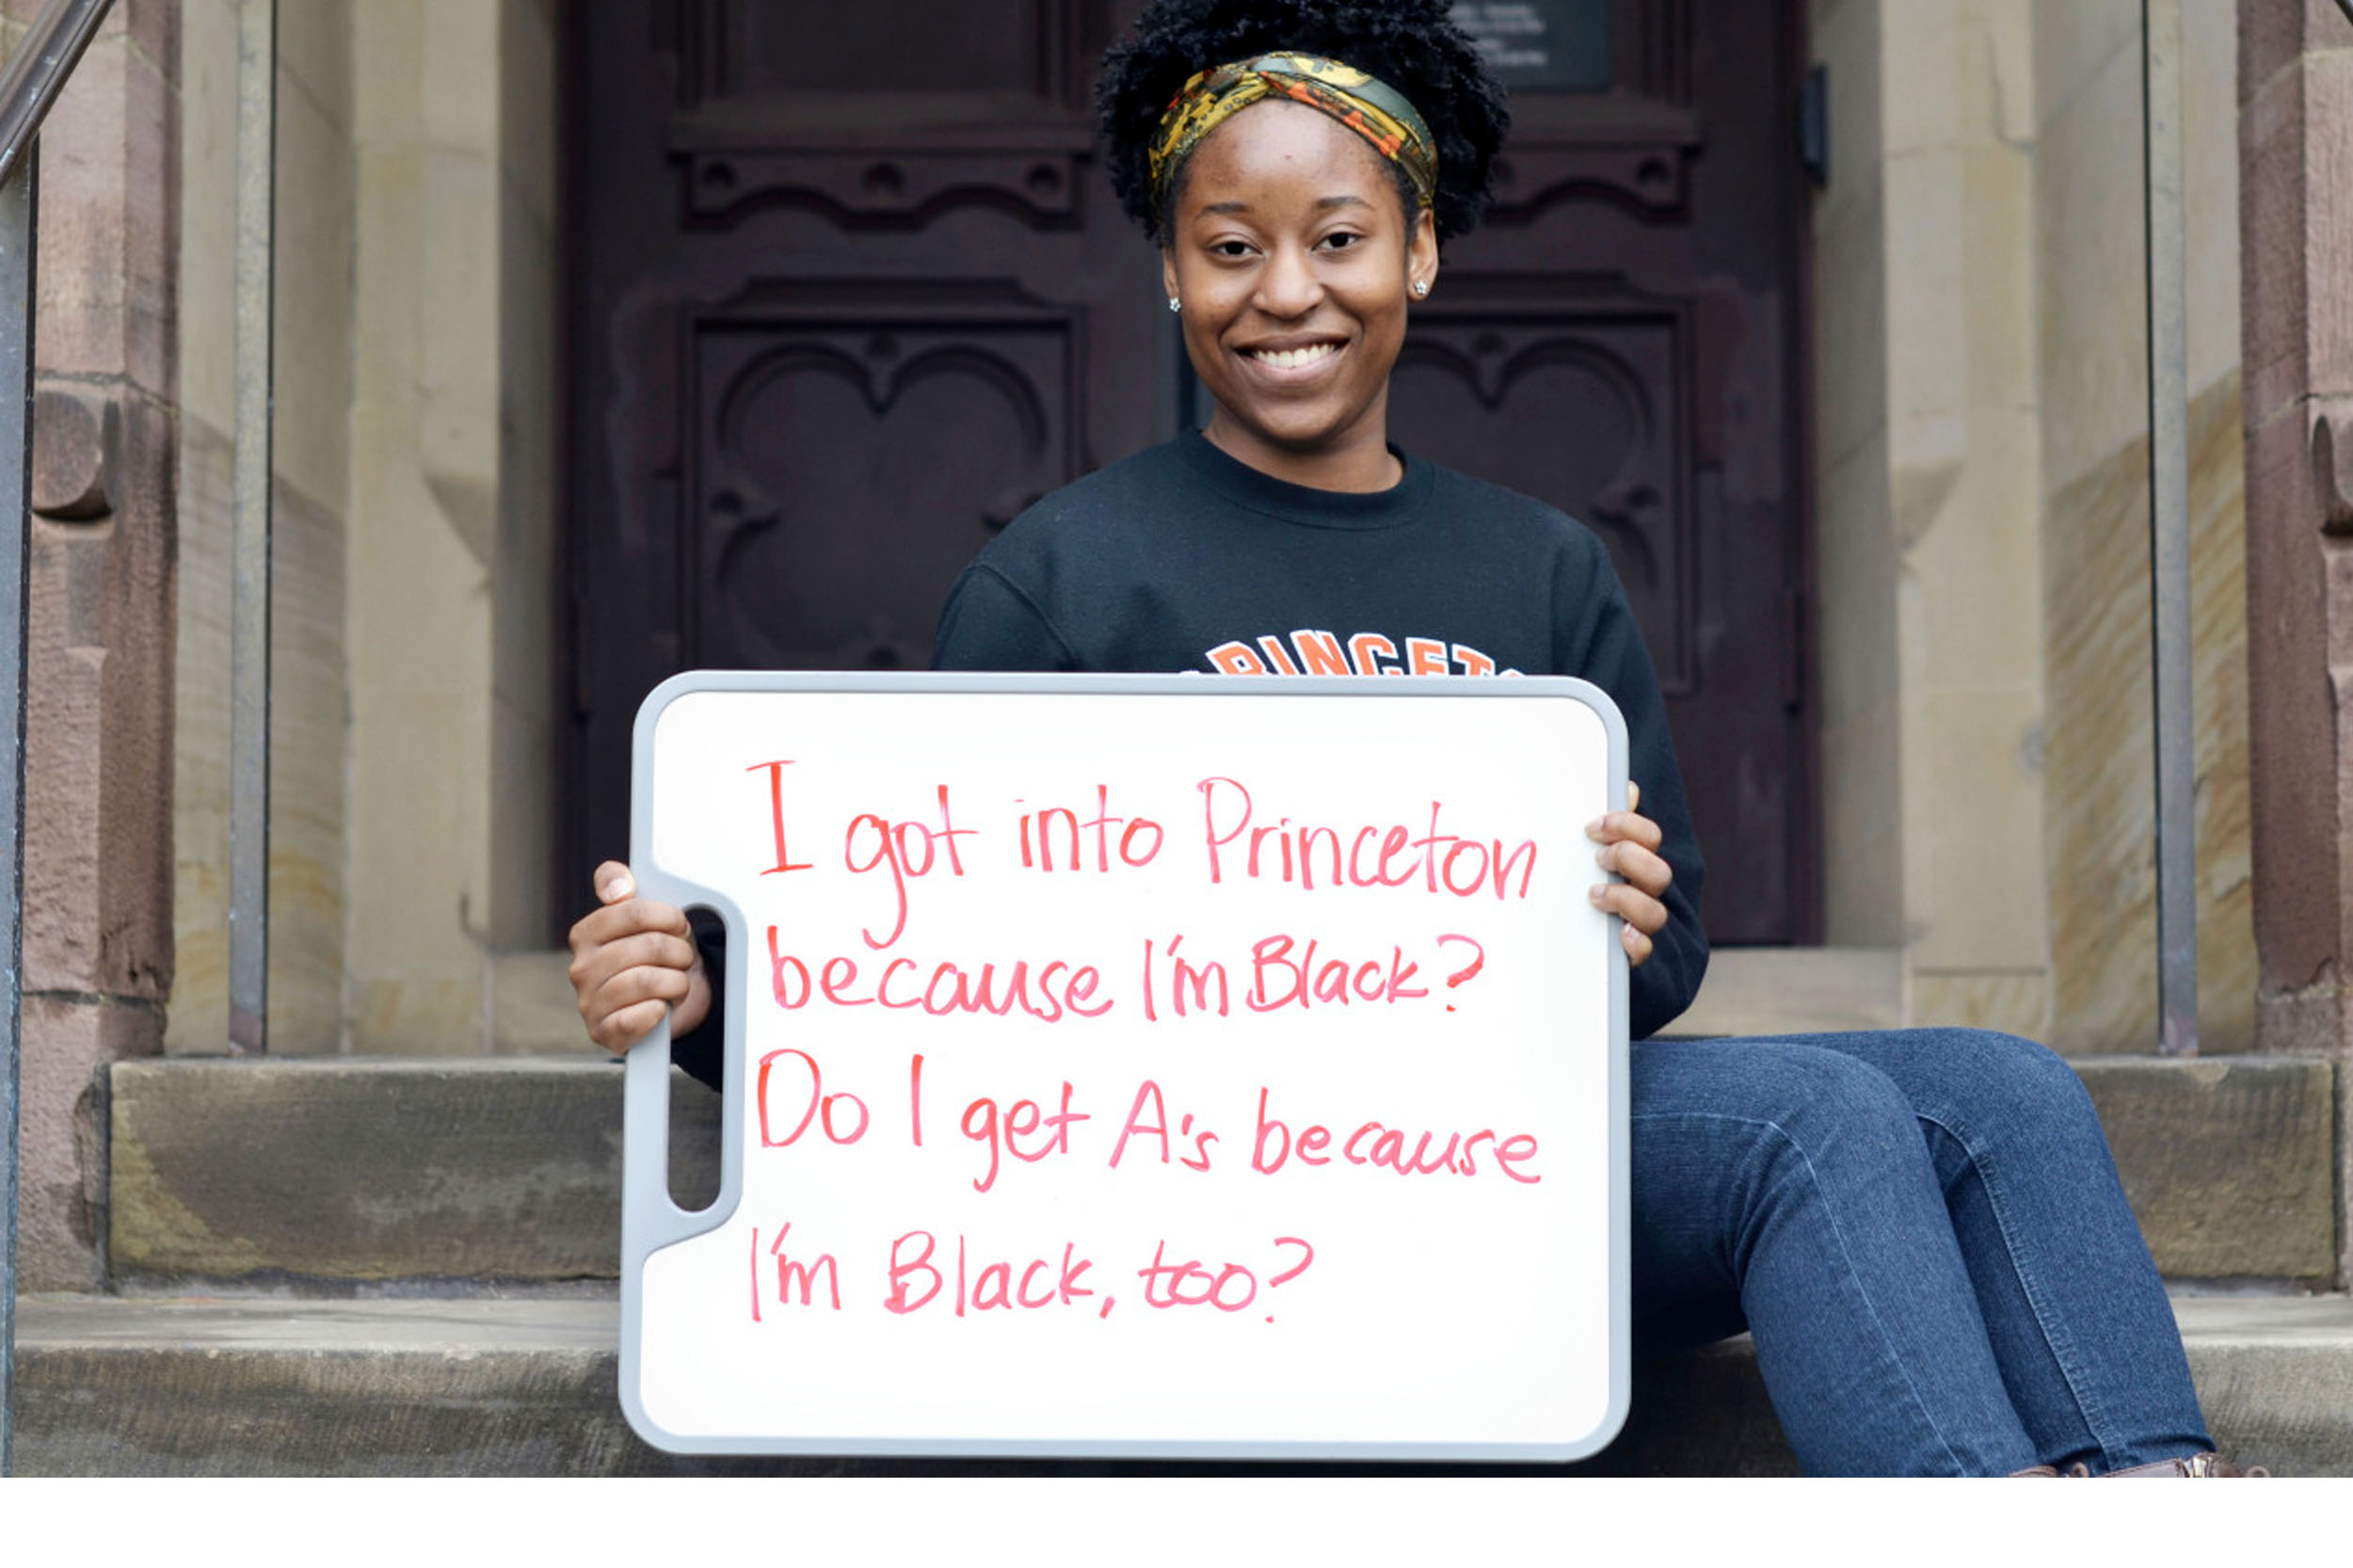 PRINCETO
I got into Princeton
because I'm Black?
Do I get A's because
I'm Black, too?